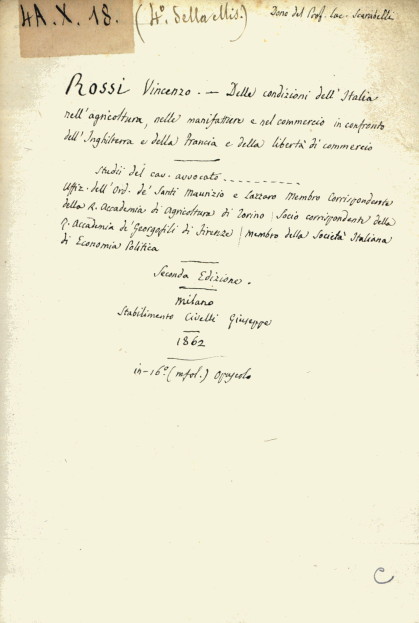 4A.X.18. (4° della Mis.) Dono del Prof. Luc. Scarabelli
Rossi Vincenzo. — Delle condizioni dell'Italia
nell'agricoltura, nelle manifatture e nel commercio in confronto
dell'Inghilterra e della Francia e della libertà di commercio
Studii del cav. avvocato - - - - - - - -
Uffiz. dell'Ord. de' Santi Maurizio e Lazzaro Membro Corrispondente
della R. Accademia di Agricoltura di Torino | Socio corrispondente della
R. Accademia de' Georgofili di Firenze | Membro della Società Italiana
di Economia Politica
Seconda Edizione.
Milano
Stabilimento Civelli Giuseppe
1862
in-16° (mfol.) Opuscolo
C